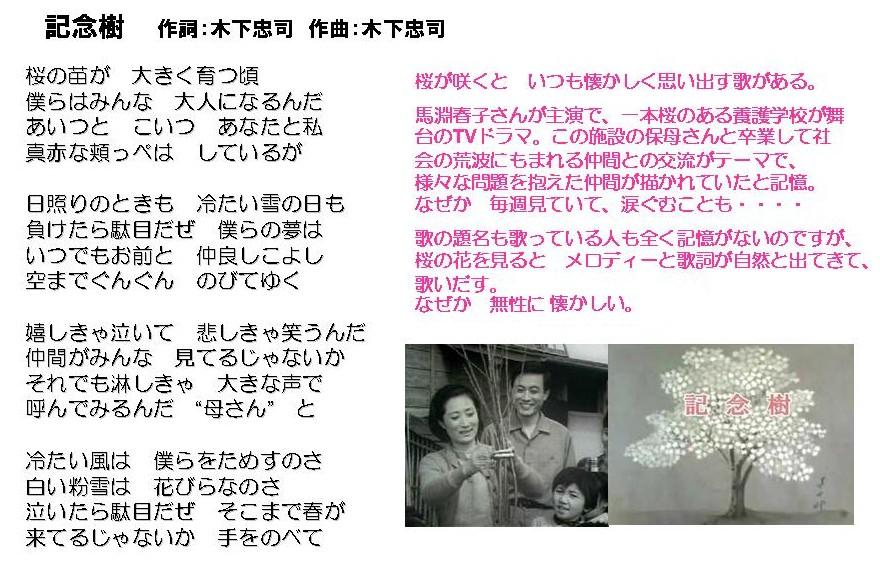 記念樹　作詞：木下忠司　作曲：木下忠司
桜の苗が　大きく育つ頃
僕らはみんな　大人になるんだ
あいつと　こいつ　あなたと私
真赤な頬っぺは　しているが
日照りのときも　冷たい雪の日も
負けたら駄目だぜ　僕らの夢は
いつでもお前と　仲良しこよし
空までぐんぐん　のびてゆく
嬉しきゃ泣いて　悲しきゃ笑うんだ
仲間がみんな　見てるじゃないか
それでも淋しきゃ　大きな声で
呼んでみるんだ　“母さん”　と
冷たい風は　僕らをためすのさ
白い粉雪は　花びらなのさ
泣いたら駄目だぜ　そこまで春が
来てるじゃないか　手をのべて
桜が咲くと　いつも懐かしく思い出す歌がある。
馬淵春子さんが主演で、一本桜のある養護学校が舞
台のTVドラマ。この施設の保母さんと卒業して社
会の荒波にもまれる仲間との交流がテーマで、
様々な問題を抱えた仲間が描かれていたと記憶。
なぜか　毎週見ていて、涙ぐむことも・・・・
歌の題名も歌っている人も全く記憶がないのですが、
桜の花を見ると　メロディーと歌詞が自然と出てきて、
歌いだす。
なぜか　無性に 懐かしい。
記念樹